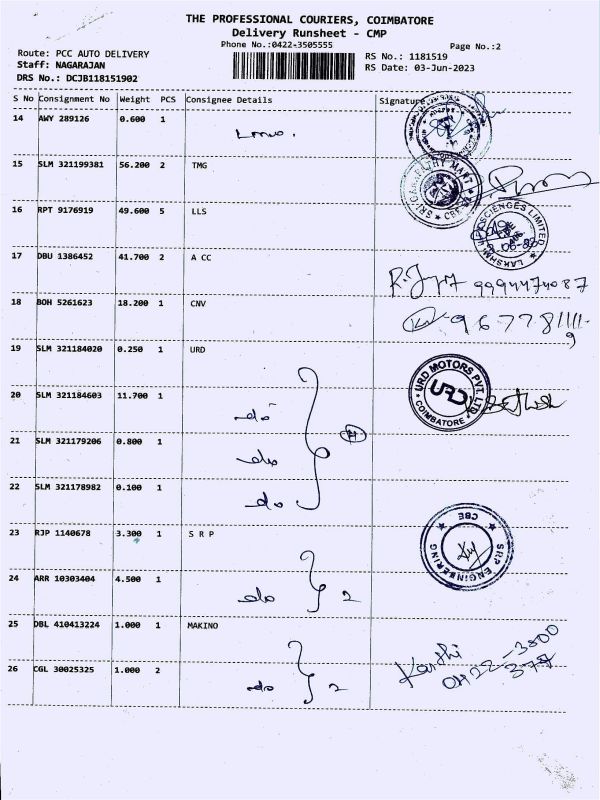 THE PROFESSIONAL COURIERS, COIMBATORE
Delivery Runsheet - CMP
Phone No.:0422-3505555
Page No.:2
Route: PCC AUTO DELIVERY
Staff: NAGARAJAN
DRS No.: DCJB118151902
RS No.: 1181519
RS Date: 03-Jun-2023
S No Consignment No Weight PCS Consignee Details Signature
14 AWY 289126 0.600 1
15 SLM 321199381 56.200 2 TMG
SRIGANAPATHY MART CBE
16 RPT 9176919 49.600 5 LLS
LAKSHMI LIMITED
17 DBU 1386452 41.700 2 A CC
9994474087
18 BOH 5261623 18.200 1 CNV
19 SLM 321184020 0.250 1 URD
URD MOTORS PVT. LTD. COIMBATORE
URD
20 SLM 321184603 11.700 1 do
21 SLM 321179206 0.800 1 do
4
22 SLM 321178982 0.100 1 do
23 RJP 1140678 3.300 1 S R P
SRP ENGINEERING CBE
24 ARR 10303404 4.500 1 do 2
25 DBL 410413224 1.000 1 MAKINO
0422-3800
377
26 CGL 30025325 1.000 2 do 2